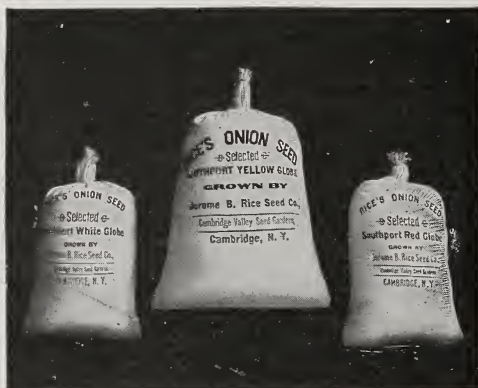 RICE'S ONION SEED
Selected
White Globe
GROWN BY
Jerome B. Rice Seed Co.,
Cambridge Valley Seed Gardens,
CAMBRIDGE, N. Y.
RICE'S ONION SEED
Selected
SOUTHPORT YELLOW GLOBE
GROWN BY
Jerome B. Rice Seed Co.,
Cambridge Valley Seed Gardens,
Cambridge, N. Y.
RICE'S ONION SEED
Selected
Southport Red Globe
GROWN BY
Jerome B. Rice Seed Co.,
Cambridge Valley Seed Gardens
CAMBRIDGE, N.Y.